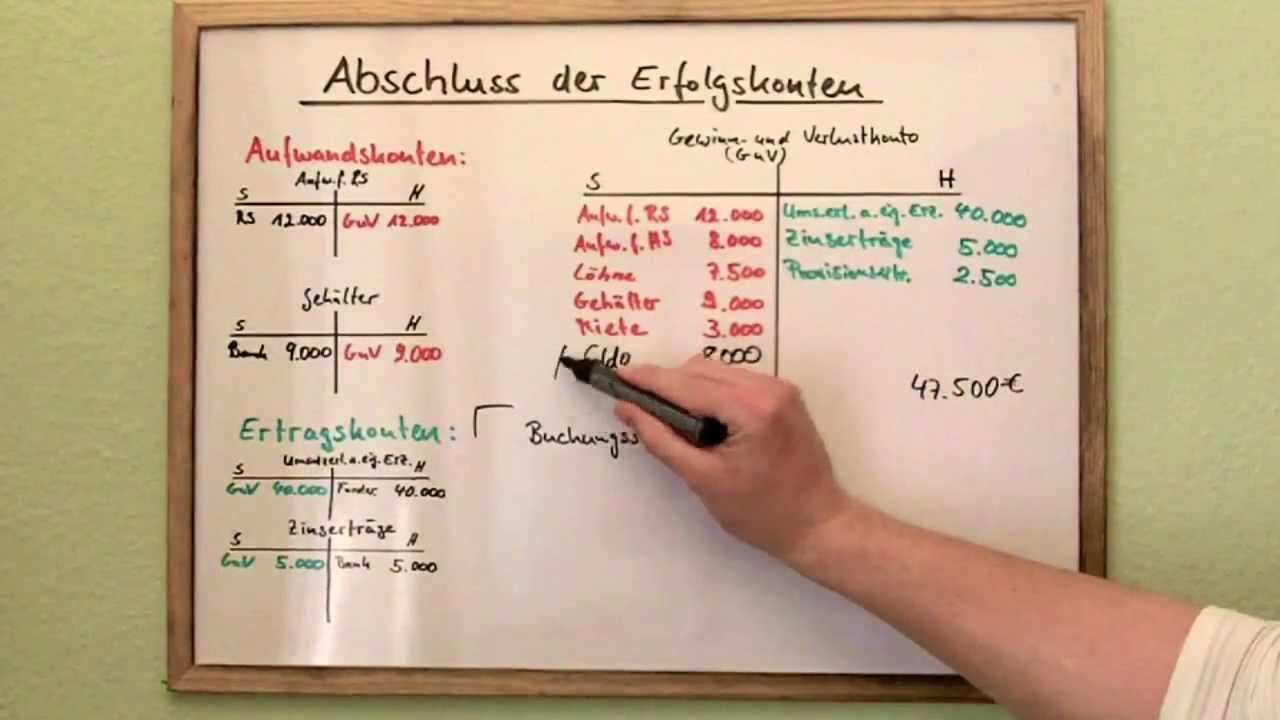 Abschluss der Erfolgskonten
Aufwandskonten:
Aufw.f. RS
S H
RS 12.000 GuV 12.000
Gehälter
S H
Bank 9.000 GuV 9.000
Ertragskonten:
Umsatzerl.a.eig.Erz.
S H
GuV 40.000 Forder. 40.000
Zinserträge
S H
GuV 5.000 Bank 5.000
Gewinn- und Verlustkonto
(GuV)
S H
Aufw.f. RS 12.000 Ums.erl. a. eig. Erz. 40.000
Aufw.f. HS 8.000 Zinserträge 5.000
Löhne 7.500 Provisionsertr. 2.500
Gehälter 9.000
Miete 3.000
8.000
47.500€